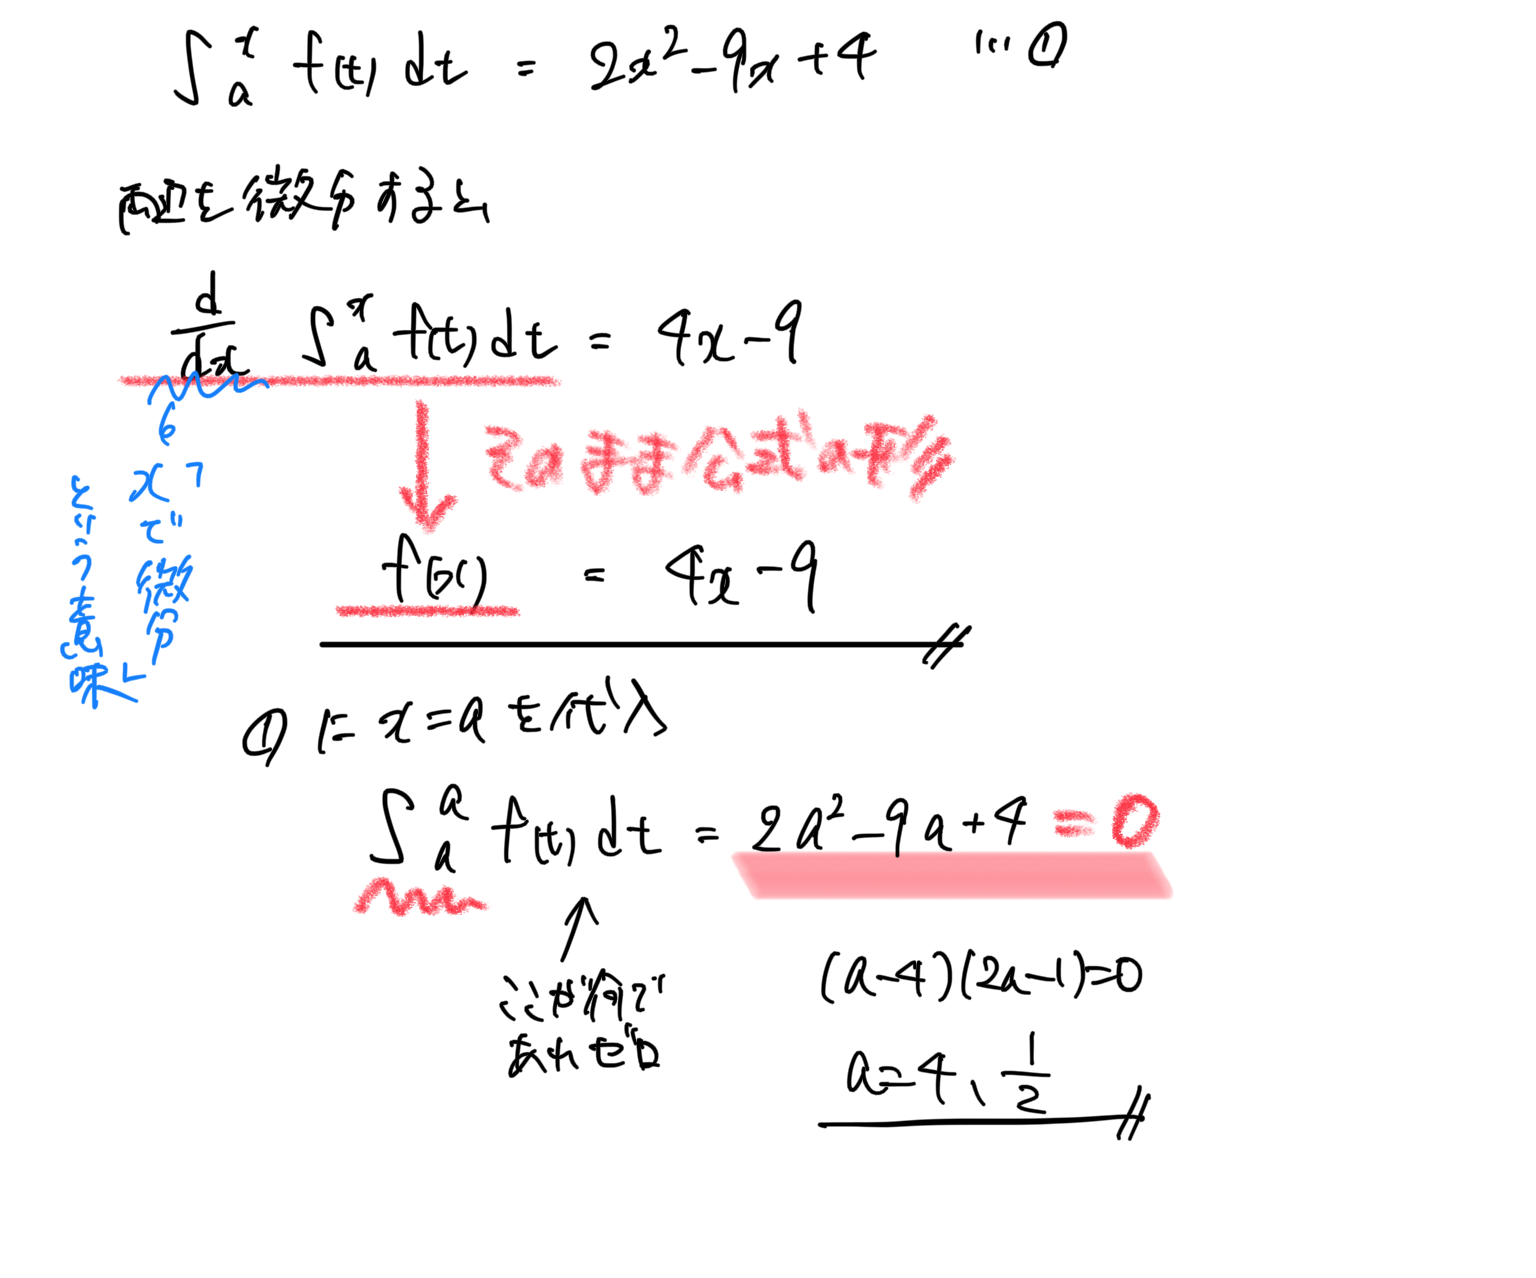 ∫ₐˣ f(t) dt = 2x²-9x+4 …①
両辺を微分すると
d/dx ∫ₐˣ f(t) dt = 4x-9
そのまま公式の形!!
「xで微分」
という意味
f(x) = 4x-9
①に x=a を代入
∫ₐᵃ f(t) dt = 2a²-9a+4 =0
ここが何で
あれゼロ
(a-4)(2a-1)=0
a=4、1/2